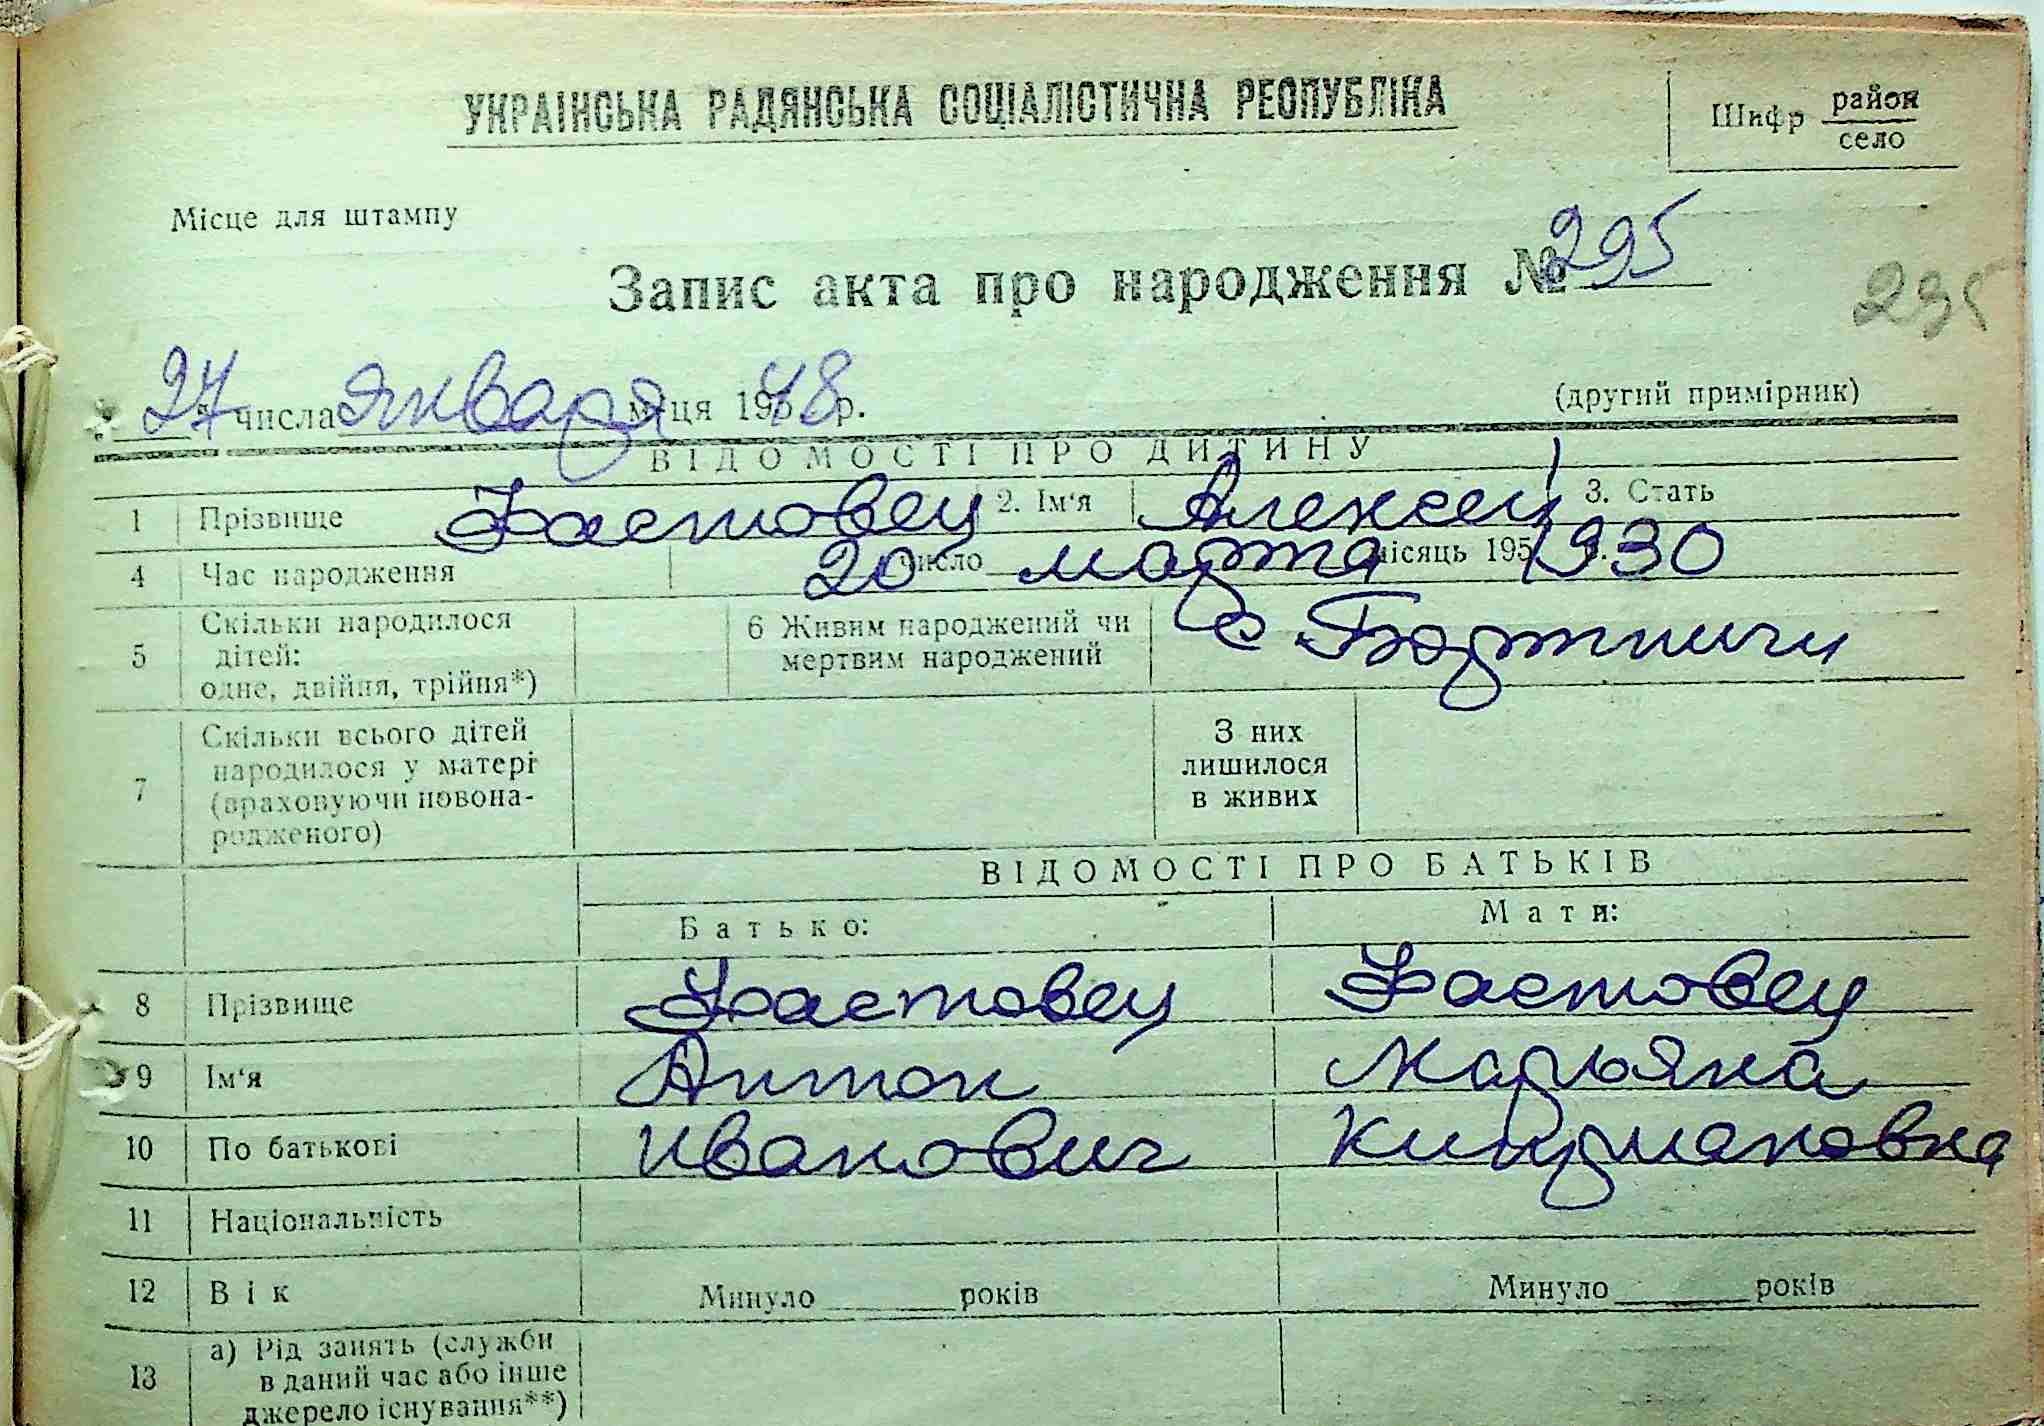 УКРАЇНСЬКА РАДЯНСЬКА СОЦІАЛІСТИЧНА РЕСПУБЛІКА
Шифр район
село
Місце для штампу
Запис акта про народження № 295
295
27 числа января м-ця 1948 р.
(другий примірник)
ВІДОМОСТІ ПРО ДИТИНУ
1 Прізвище Фастовец 2. Ім'я Алексей 3. Стать
4 Час народження 20 число марта місяць 195 1930
5 Скільки народилося дітей: одне, двійня, трійня*) 6 Живим народжений чи мертвим народжений с Бортничи
7 Скільки всього дітей народилося у матері (враховуючи новона-
родженого) З них лишилося в живих
ВІДОМОСТІ ПРО БАТЬКІВ
Батько: Мати:
8 Прізвище Фастовец Фастовец
9 Ім'я Антон Марьяна
10 По батькові Иванович
11 Національність
12 Вік Минуло ______ років Минуло ______ років
13 а) Рід занять (служби в даний час або інше джерело існування**)